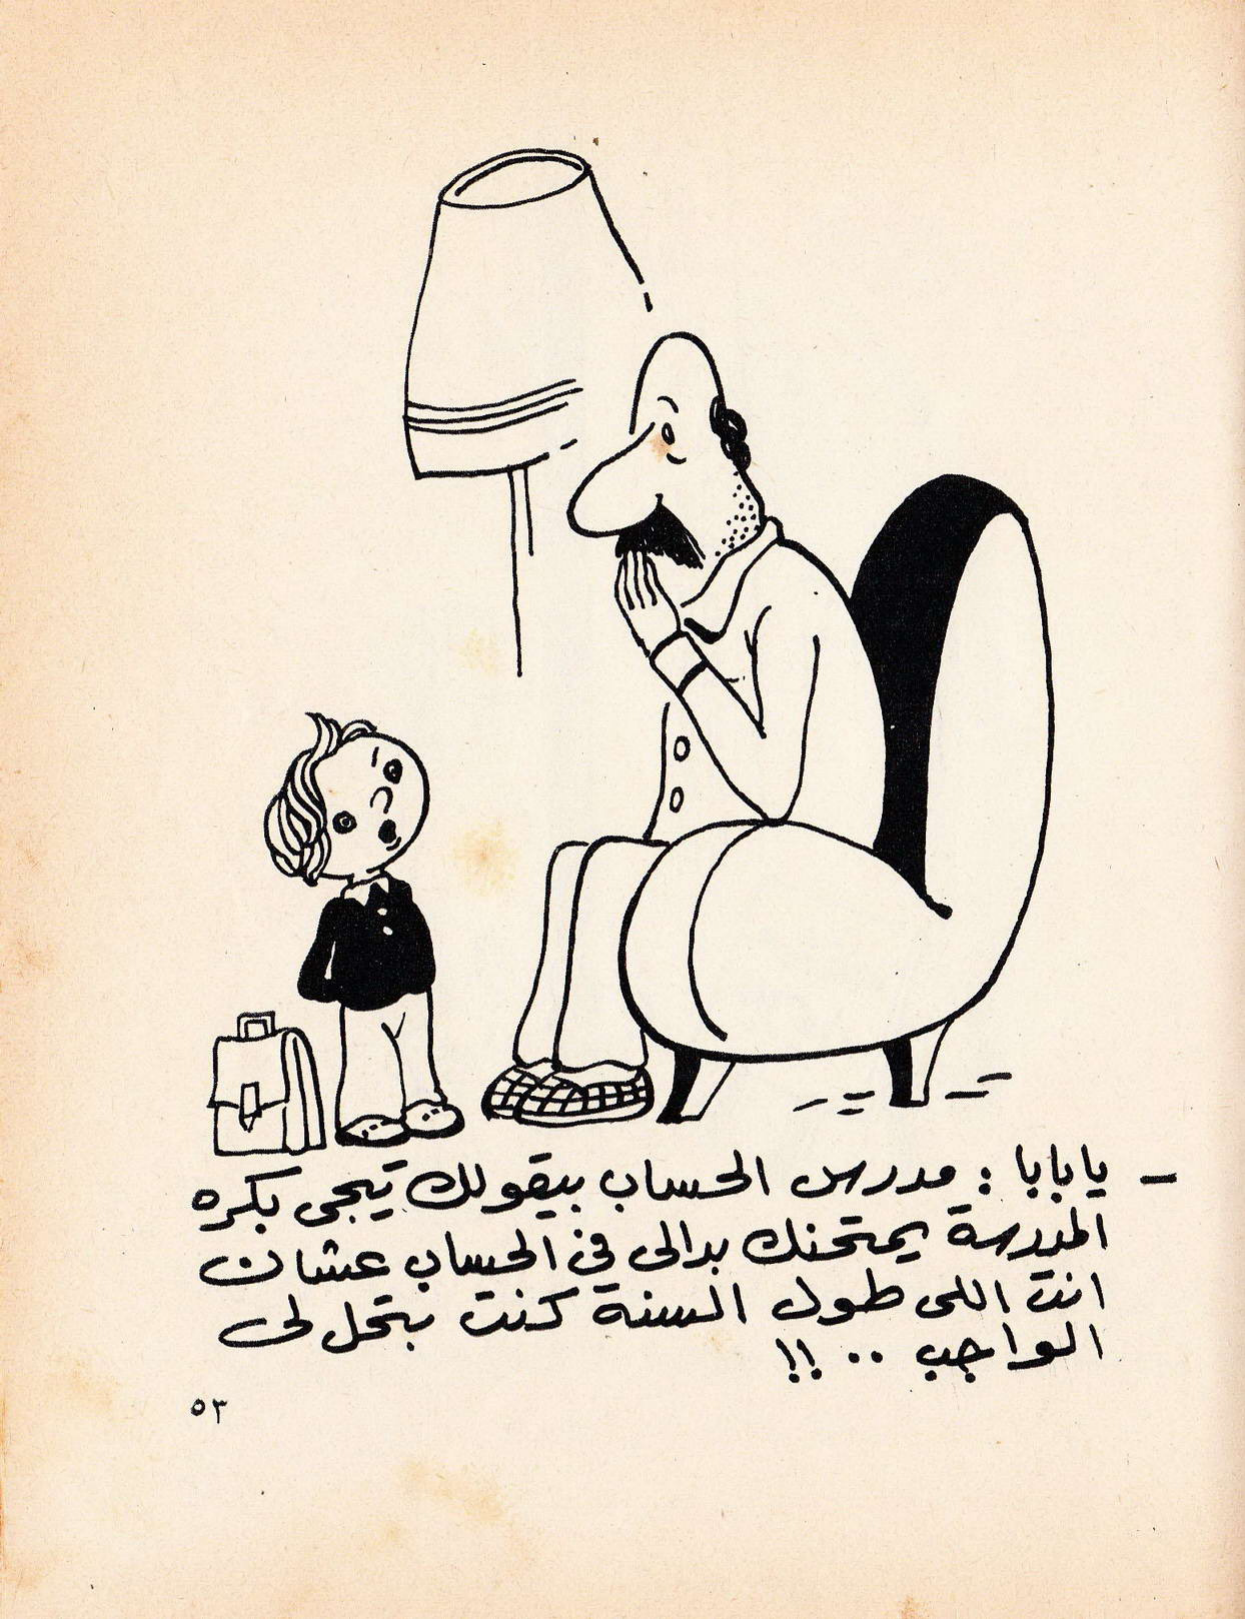 - يا بابا : مدرس الحساب بيقولك تيجى بكره
المدرسة يمتحنك بدالى فى الحساب عشان
انت اللى طول السنة كنت بتحل لى
الواجب .. !!
٥٣